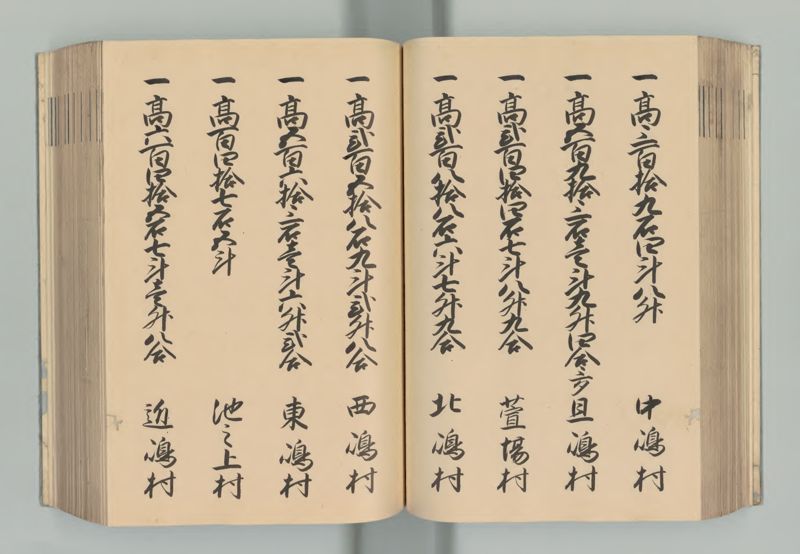 一高三百拾九石四斗八升 中嶋村
一高五百九拾三石壱斗九升四合三夕 且嶋村
一高弐百四拾四石七斗八升九合 萱場村
一高弐百八拾八石六斗七升九合 北嶋村
一高弐百五拾八石九斗弐升八合 西嶋村
一高五百六拾三石壱斗六升弐合 東嶋村
一高百四拾七石五斗 池之上村
一高六百四拾五石七斗壱升八合 近嶋村